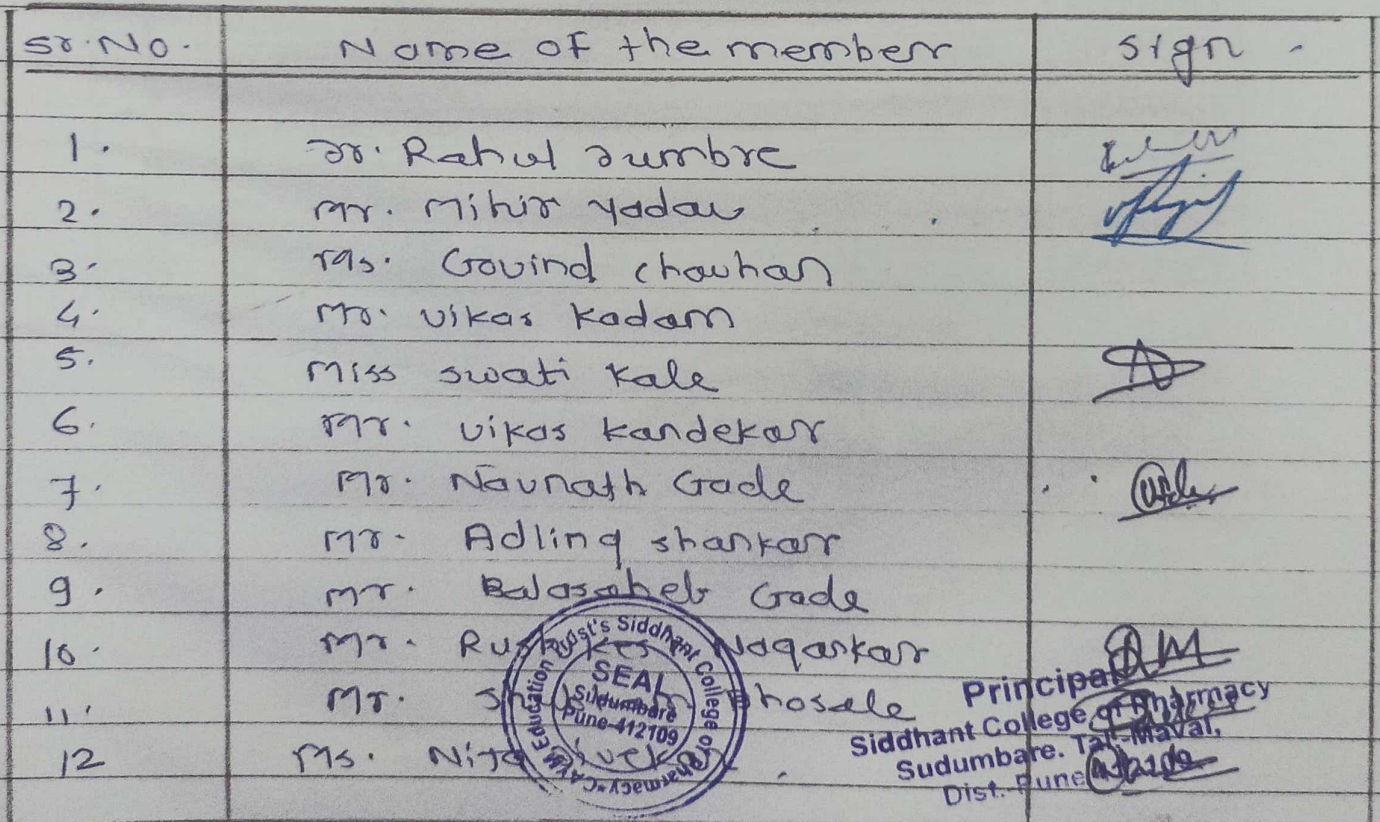 Sr.No. Name of the member sign
1. Dr. Rahul Dumbre
2. Mr. Mihir Yadav
3. Ms. Govind chauhan
4. Mr. vikas Kadam
5. Miss swati Kale
6. Mr. vikas kandekar
7. Mr. Navnath Gade
8. Mr. Adling shankar
9. Mr. Balasaheb Gade
10. Mr. Nagarkar
11. Mr. Bhosale
12 Ms. Nita
Education Trust's Siddhant College of Pharmacy
SEAL
Sudumbare
Pune-412109
Principal
Siddhant College of Pharmacy
Sudumbare. Tal-Maval,
Dist. Pune 412109